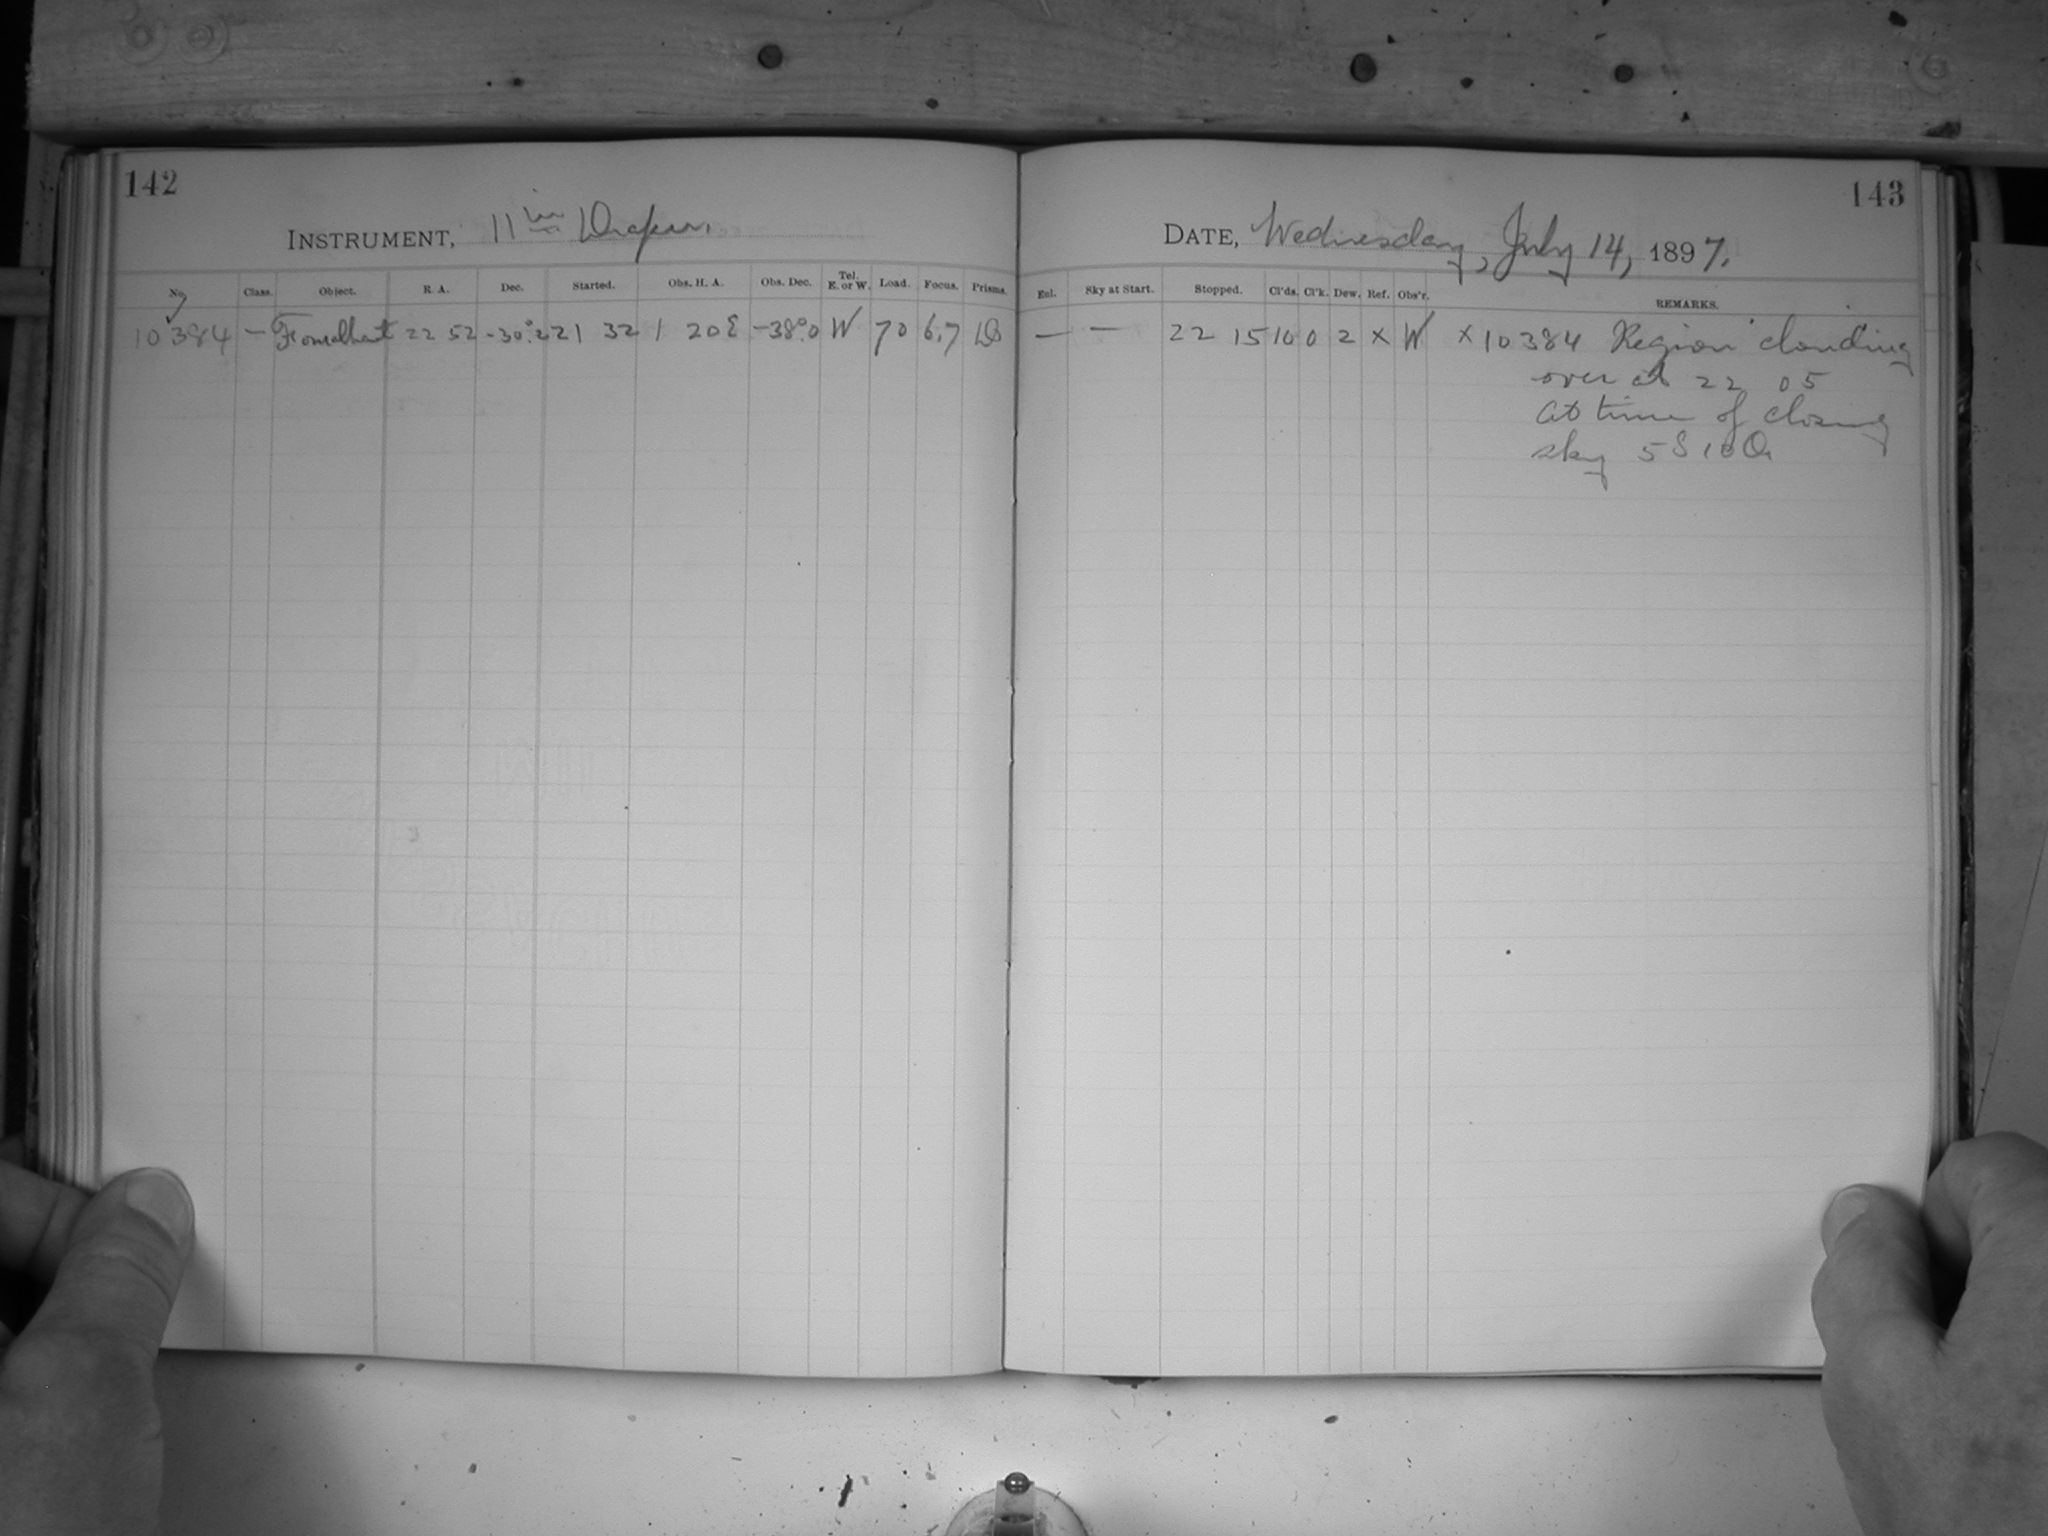 142
INSTRUMENT, 11 in Draper.
No. Class. Object. R. A. Dec. Started. Obs. H. A. Obs. Dec. Tel. E. or W. Load. Focus. Prisms.
10384 — Fomalhaut 22 52 -30°.2 21 32 1 20 E -38°.0 W 70 6.7
143
DATE, Wednesday, July 14, 1897.
Enl. Sky at Start. Stopped. Cl'ds. Cl'k. Dew. Ref. Obs'r. REMARKS.
— — 22 15 10 0 2 X W X 10384 Region clouding
over at 22 05
At time of closing
sky 5 S 10